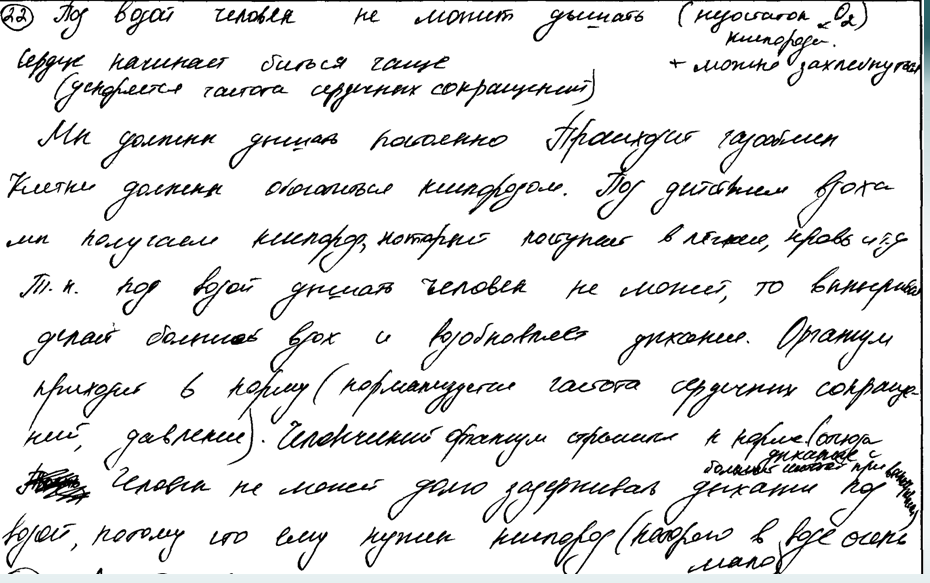 22 Под водой человек не может дышать (недостаток O2)
кислорода.
Сердце начинает биться чаще + можно захлебнуться
(ускоряется частота сердечных сокращений)
Мы должны дышать постоянно Происходит газообмен
Клетки должны обогатиться кислородом. Под действием вдоха
мы получаем кислород, который поступает в лёгкие, кровь и т.д
Т.к. под водой дышать человек не может, то
делает большой вдох и возобновляет дыхание. Организм
приходит в норму (нормализуется частота сердечных сокраще-
ний, давление). Человеческий организм стремится к норме (отсюда
дыхание
большой при
Человек не может долго задерживать дыхание под
водой, потому что ему нужен кислород (которого в воде очень
мало)